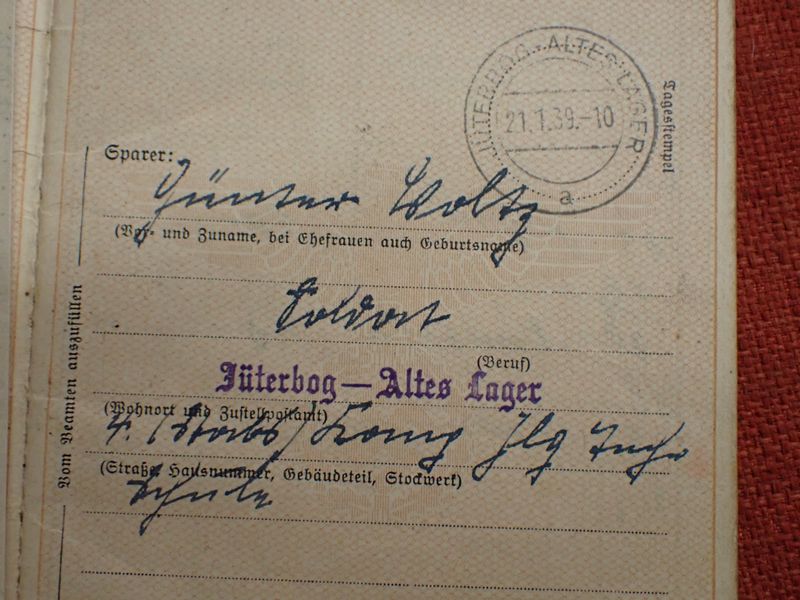 JÜTERBOG-ALTES LAGER
21.1.39.-10
a
Tagesstempel
Sparer:
Günter Woltz
(Vor- und Zuname, bei Ehefrauen auch Geburtsname)
Soldat
(Beruf)
Jüterbog—Altes Lager
(Wohnort und Zustellpostamt)
4. (Stabs) Komp Flg Techn
(Straße, Hausnummer, Gebäudeteil, Stockwerk)
Schule
Vom Beamten auszufüllen